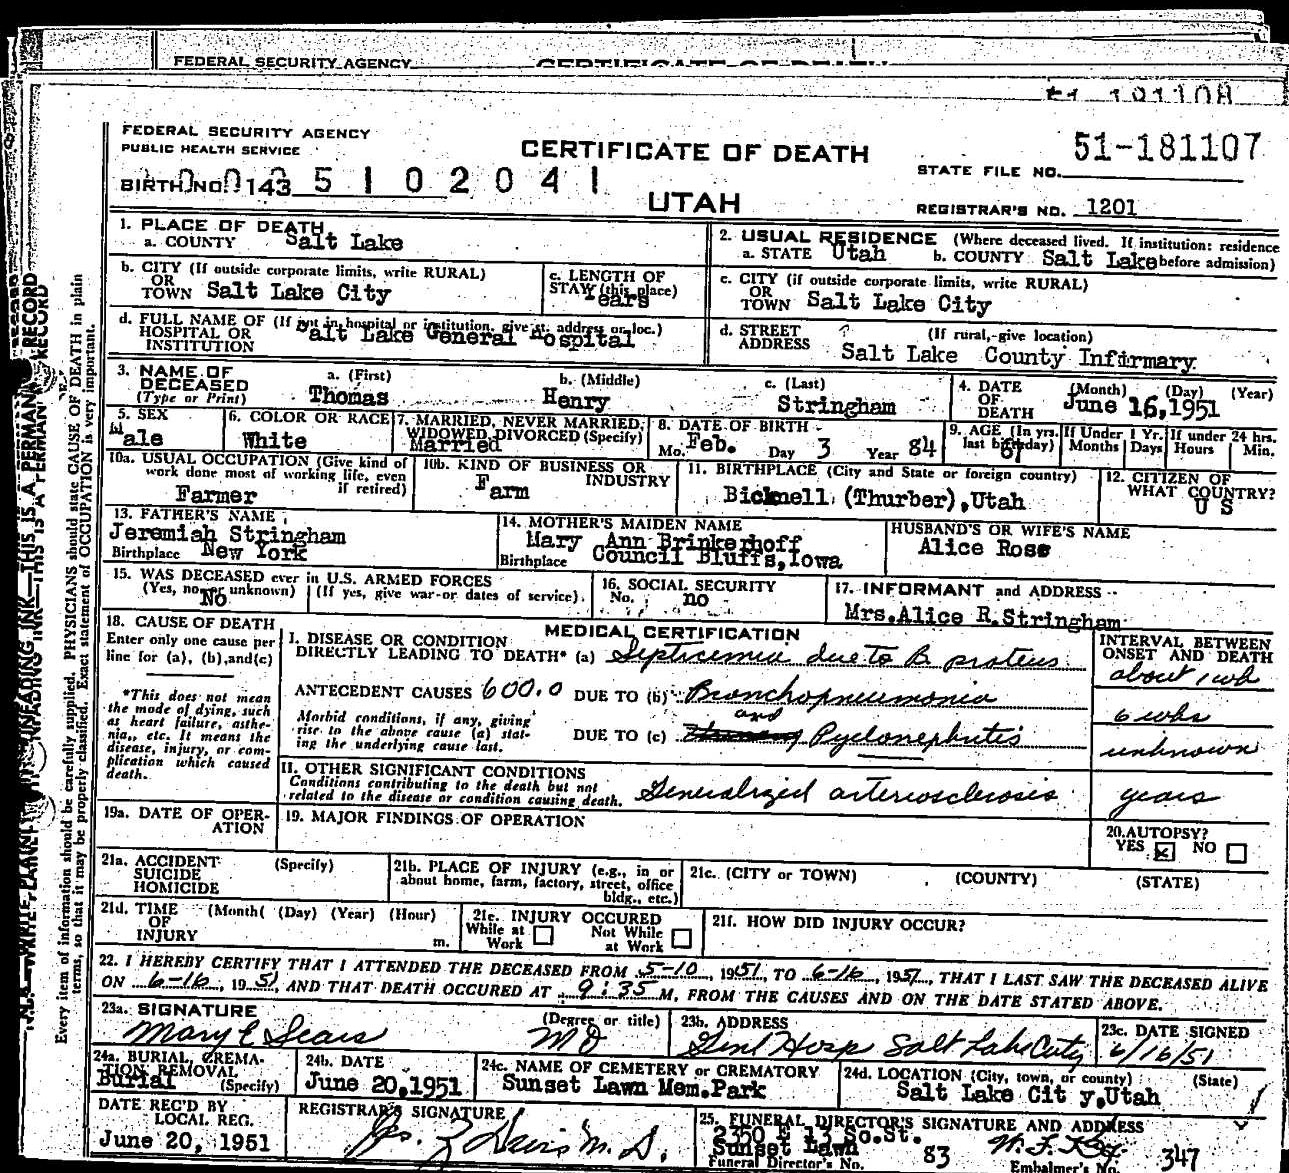 FEDERAL SECURITY AGENCY
CERTIFICATE OF DEATH
51 181108
FEDERAL SECURITY AGENCY
PUBLIC HEALTH SERVICE
CERTIFICATE OF DEATH
51-181107
STATE FILE NO.
BIRTH NO. 143 5102041
UTAH
REGISTRAR'S NO. 1201
1. PLACE OF DEATH
a. COUNTY Salt Lake
2. USUAL RESIDENCE (Where deceased lived. If institution: residence before admission)
a. STATE Utah b. COUNTY Salt Lake
b. CITY (If outside corporate limits, write RURAL)
OR TOWN Salt Lake City
c. LENGTH OF STAY (this place)
Years
c. CITY (if outside corporate limits, write RURAL)
OR TOWN Salt Lake City
d. FULL NAME OF (If not in hospital or institution, give st. address or loc.)
HOSPITAL OR INSTITUTION Salt Lake General Hospital
d. STREET ADDRESS (If rural, give location)
Salt Lake County Infirmary
3. NAME OF DECEASED (Type or Print)
a. (First) Thomas
b. (Middle) Henry
c. (Last) Stringham
4. DATE OF DEATH (Month) (Day) (Year)
June 16, 1951
5. SEX
Male
6. COLOR OR RACE
White
7. MARRIED, NEVER MARRIED, WIDOWED, DIVORCED (Specify)
Married
8. DATE OF BIRTH
Mo. Feb. Day 3 Year 84
9. AGE (In yrs. last birthday)
67
If Under 1 Yr. Months Days
If under 24 hrs. Hours Min.
10a. USUAL OCCUPATION (Give kind of work done most of working life, even if retired)
Farmer
10b. KIND OF BUSINESS OR INDUSTRY
Farm
11. BIRTHPLACE (City and State or foreign country)
Bicknell (Thurber), Utah
12. CITIZEN OF WHAT COUNTRY?
U S
13. FATHER'S NAME
Jeremiah Stringham
Birthplace New York
14. MOTHER'S MAIDEN NAME
Mary Ann Brinkerhoff
Birthplace Council Bluffs, Iowa
HUSBAND'S OR WIFE'S NAME
Alice Rose
15. WAS DECEASED ever in U.S. ARMED FORCES
(Yes, no or unknown) (If yes, give war or dates of service).
No
16. SOCIAL SECURITY No.
no
17. INFORMANT and ADDRESS
Mrs. Alice R. Stringham
18. CAUSE OF DEATH
Enter only one cause per line for (a), (b), and (c)
*This does not mean the mode of dying, such as heart failure, asthenia, etc. It means the disease, injury, or complication which caused death.
MEDICAL CERTIFICATION
I. DISEASE OR CONDITION DIRECTLY LEADING TO DEATH* (a) Septicemia due to B. proteus
ANTECEDENT CAUSES 600.0 DUE TO (b) Bronchopneumonia
Morbid conditions, if any, giving rise to the above cause (a) stating the underlying cause last.
and
DUE TO (c) Pyelonephritis
II. OTHER SIGNIFICANT CONDITIONS
Conditions contributing to the death but not related to the disease or condition causing death.
Generalized arteriosclerosis
INTERVAL BETWEEN ONSET AND DEATH
about 1 wk
6 wks
unknown
years
19a. DATE OF OPERATION
19. MAJOR FINDINGS OF OPERATION
20. AUTOPSY?
YES NO
21a. ACCIDENT SUICIDE HOMICIDE (Specify)
21b. PLACE OF INJURY (e.g., in or about home, farm, factory, street, office bldg., etc.)
21c. (CITY or TOWN) (COUNTY) (STATE)
21d. TIME OF INJURY (Month) (Day) (Year) (Hour) m.
21e. INJURY OCCURED
While at Work Not While at Work
21f. HOW DID INJURY OCCUR?
22. I HEREBY CERTIFY THAT I ATTENDED THE DECEASED FROM 5-10, 1951, TO 6-16, 1951, THAT I LAST SAW THE DECEASED ALIVE
ON 6-16, 1951, AND THAT DEATH OCCURED AT 9:35 M, FROM THE CAUSES AND ON THE DATE STATED ABOVE.
23a. SIGNATURE (Degree or title)
Mary E Sears M D
23b. ADDRESS
Genl Hosp Salt Lake City
23c. DATE SIGNED
6/16/51
24a. BURIAL, CREMATION, REMOVAL (Specify)
Burial
24b. DATE
June 20, 1951
24c. NAME OF CEMETERY or CREMATORY
Sunset Lawn Mem. Park
24d. LOCATION (City, town, or county) (State)
Salt Lake City, Utah
DATE REC'D BY LOCAL REG.
June 20, 1951
REGISTRAR'S SIGNATURE
25. FUNERAL DIRECTOR'S SIGNATURE AND ADDRESS
2350 E 13 So. St.
Sunset Lawn
Funeral Director's No. 83
Embalmer's No. 347
N.B.—WRITE PLAINLY WITH UNFADING INK—THIS IS A PERMANENT RECORD
Every item of information should be carefully supplied. PHYSICIANS should state CAUSE OF DEATH in plain
terms, so that it may be properly classified. Exact statement of OCCUPATION is very important.